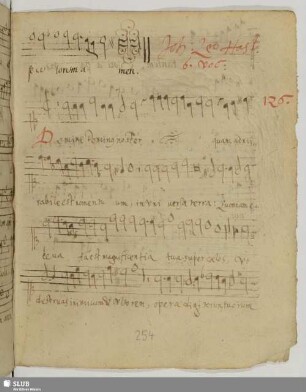 peccatorum a men.
Joh. Leo Hasl.
6. Voc.
126.
Domine Dominus noster quam admi
rabile est nomen tu um, in uni versa terra: Quoniam e
leva ta est magnificentia tua super celos, ut
destruas inimicum et ultorem,
254
SLUB